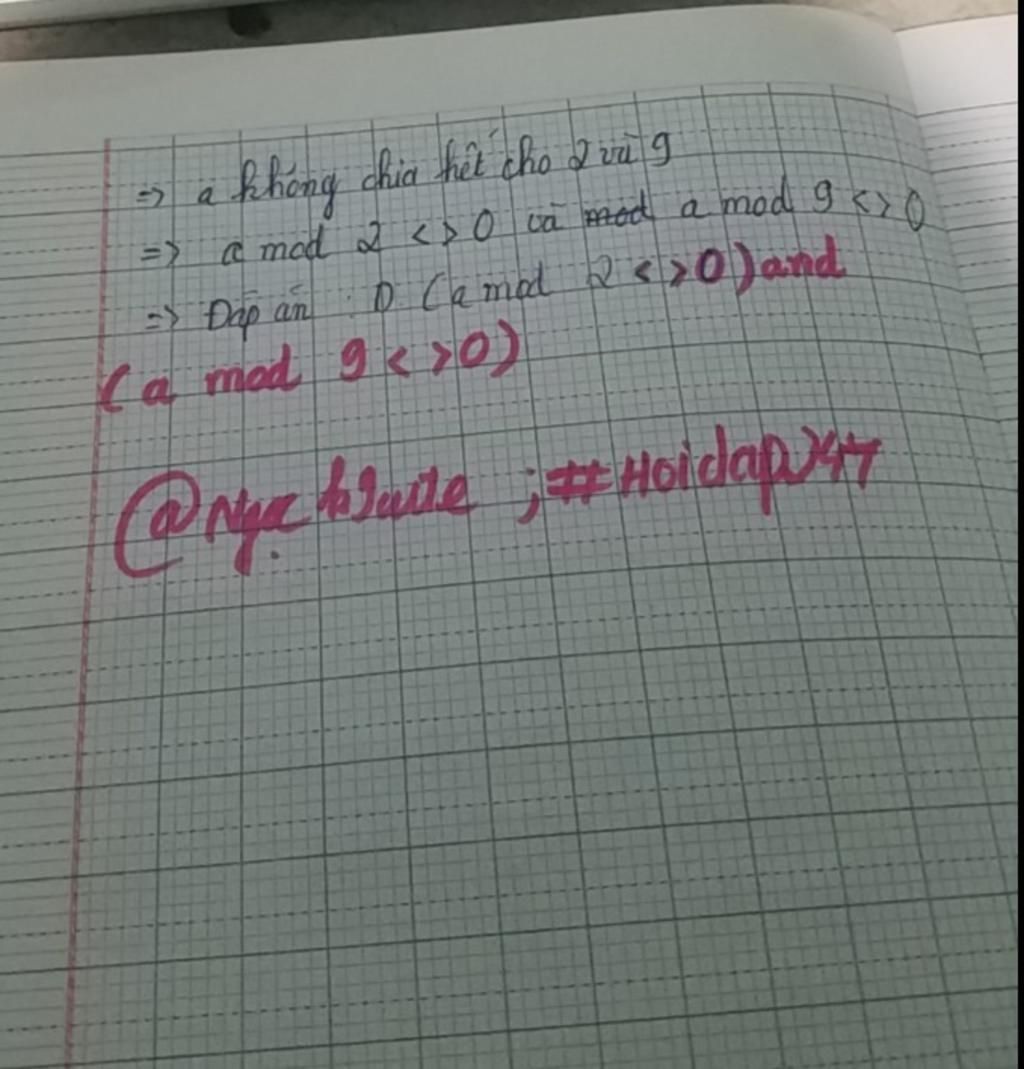 => a không chia hết cho 2 và 9
=> a mod 2 <> 0 và mod a mod 9 <> 0
=> Đáp án : D (a mod 2 <> 0) and
(a mod 9 <> 0)
@ ;#Hoidap247